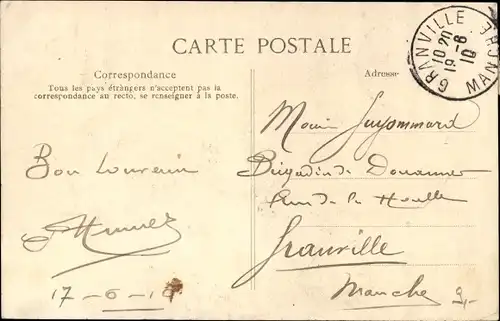 CARTE POSTALE
Correspondance
Tous les pays étrangers n'acceptent pas la
correspondance au recto, se renseigner à la poste.
Adresse
GRANVILLE
10 20
19 - 6
10
MANCHE
Bon souvenir
17 - 6 - 10
Guyommard
Brigadier de Douanes
Rue de la Houle
Granville
Manche